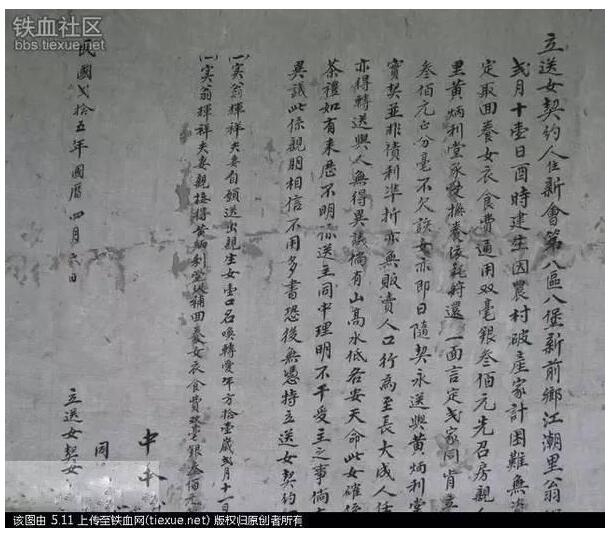 铁血社区
bbs.tiexue.net
立送女契約人住新會第八區八堡新前鄉江潮里翁
弍月十壹日酉時建生因農村破產家計困難無
定取回養女衣食費通用双毫銀叁佰元先召房親人
里黄炳利堂承受撫養依 還一面言定弍家同肯立
叁佰元正分毫不欠該女亦即日隨契永送與黄炳利堂
實契並非債利準折亦無販賣人口行為至長大成人任
亦得轉送與人無得異議倘有山高水低各安天命此女確係
茶禮如有来歷不明係送主同中理明不干受主之事倘有
異議此係親朋相信不用多書恐後無憑特立送女契約
(一)实翁輝祥夫妻自願送出親生女壹口名喚轉愛年方拾壹歲弍月十一日
(一)实翁輝祥夫妻親接得黄炳利堂 補回養女衣食費双毫銀叁佰元
中人
同
立送女契
民國弍拾五年國曆四月六日
该图由 5.11 上传至铁血网(tiexue.net) 版权归原创者所有